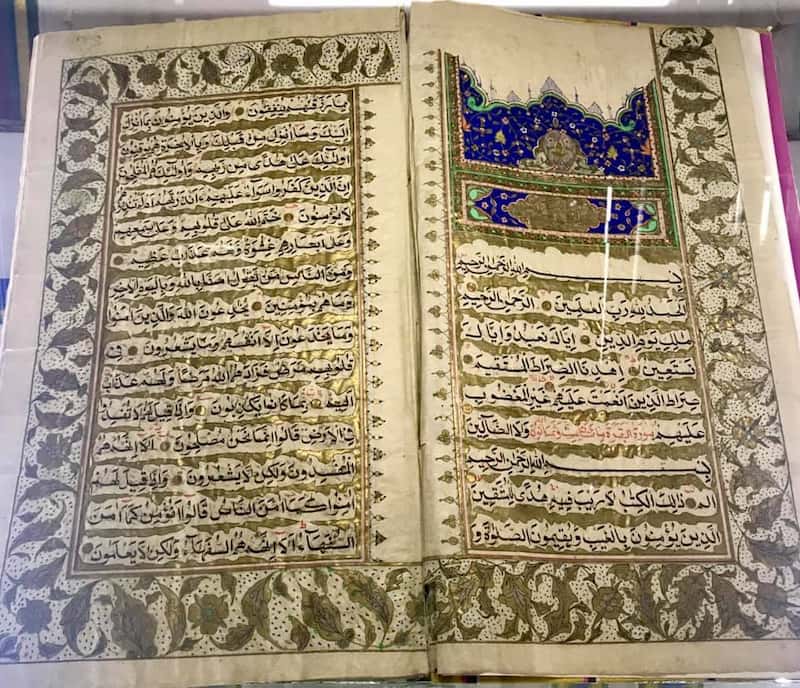 بسم الله الرحمن الرحيم
الحمد لله رب العلمين الرحمن الرحيم
ملك يوم الدين اياك نعبد و اياك
نستعين اهدنا الصراط المستقيم
صراط الذين انعمت عليهم غير المغضوب
عليهم سورة البقرة ولا الضالين
بسم الله الرحمن الرحيم
الم ذلك الكتب لا ريب فيه هدى للمتقين
الذين يؤمنون بالغيب ويقيمون الصلوة و
مما رزقنهم ينفقون والذين يؤمنون بما انزل
اليك وما انزل من قبلك وبالاخرة هم يوقنون
اولئك على هدى من ربهم واولئك هم المفلحون
ان الذين كفروا سواء عليهم ءانذرتهم ام لم تنذرهم
لا يؤمنون ختم الله على قلوبهم وعلى سمعهم
وعلى ابصارهم غشوة ولهم عذاب عظيم
ومن الناس من يقول امنا بالله وباليوم الاخر
وما هم بمؤمنين يخدعون الله والذين امنوا
وما يخدعون الا انفسهم وما يشعرون في
قلوبهم مرض فزادهم الله مرضا ولهم عذاب
اليم بما كانوا يكذبون واذا قيل لهم لا تفسدوا
في الارض قالوا انما نحن مصلحون الا انهم هم
المفسدون ولكن لا يشعرون واذا قيل لهم
امنوا كما امن الناس قالوا انؤمن كما امن
السفهاء الا انهم هم السفهاء ولكن لا يعلمون